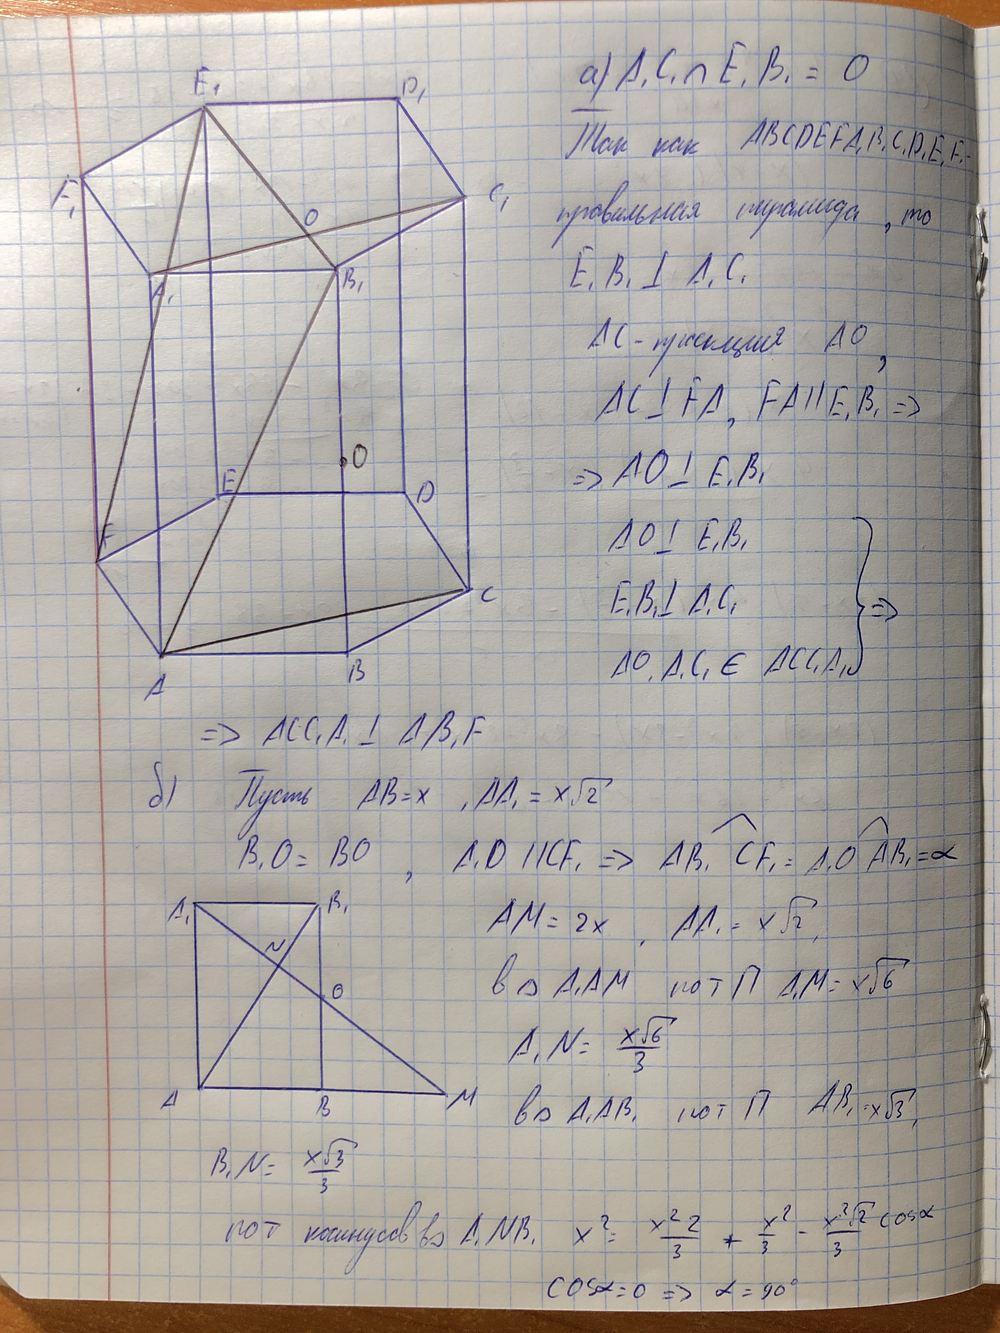 E₁
D₁
F₁
C₁
O
A₁
B₁
O
E
D
F
C
A
B
а) A₁C₁ ∩ E₁B₁ = O
Так как ABCDEFA₁B₁C₁D₁E₁F₁ -
правильная пирамида, то
E₁B₁ ⊥ A₁C₁
AC - проекция AO,
AC ⊥ FA, FA || E₁B₁ =>
=> AO ⊥ E₁B₁
AO ⊥ E₁B₁
E₁B₁ ⊥ A₁C₁
AO, A₁C₁ ∈ ACC₁A₁ } =>
=> ACC₁A₁ ⊥ AB₁F
б) Пусть AB = x, AA₁ = x√2
B₁O = BO, A₁O || CF₁ => AB₁ ^ CF₁ = A₁O ^ AB₁ = α
A₁
B₁
N
O
A
B
M
AM = 2x, AA₁ = x√2,
в △ A₁AM по т П A₁M = x√6
A₁N = x√6/3
в △ A₁AB₁ по т П AB₁ = x√3,
B₁N = x√3/3
по т косинусов в △ A₁NB₁ x² = x²2/3 + x²/3 - x²√2/3 cosα
cosα = 0 => α = 90°